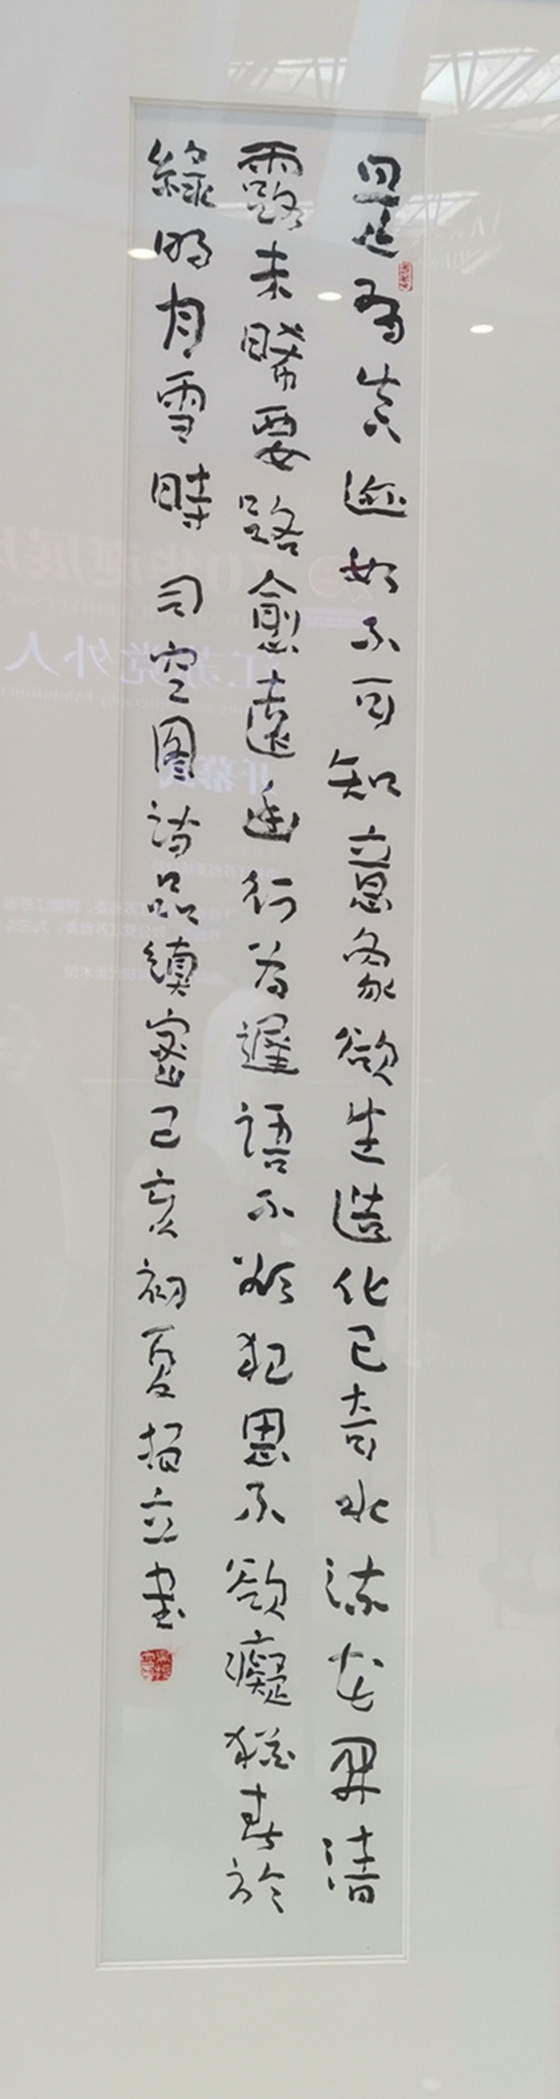 是有真迹如不可知意象欲生造化已奇水流花開清
露未晞要路愈遠幽行為遲語不欲犯思不欲癡猶春於
綠明月雪時 司空圖詩品縝密己亥初夏立書